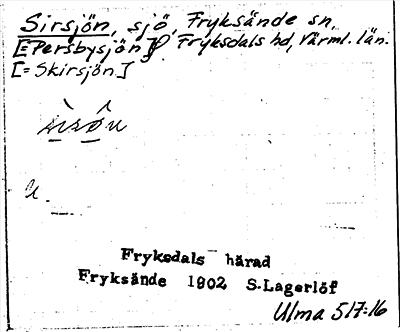 Sirsjön, sjö, Fryksände sn,
[=Persbysjön], Fryksdals hd, Värml. län.
[=Skirsjön]
u.
Fryksdals härad
Fryksände 1902 S.Lagerlöf
Ulma 517:16